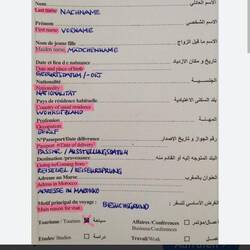 Nom الاسم العائلي
Last name NACHNAME
Prénom الاسم الشخصي
First name VORNAME
Nom de jeune fille الاسم ما قبل الزواج
Maiden name MÄDCHENNAME
Date et lieu de naissance تاريخ و مكان الازدياد
Date and place of birth
GEBURTSDATUM / -ORT
Nationalité الجنسية
Nationality
NATIONALITÄT
Pays de résidence habituelle بلد السكنى الاعتيادية
Country of usual residence
WOHNSITZLAND
Profession المهنة
Occupation
BERUF
N°Passeport/Date délivrance رقم الجواز و تاريخ الاصدار
Passport n°/Date of delivery
PASSNR. / AUSSTELLUNGSDATUM
Destination / provenance البلد المتوجه إليه أو القادم منه
Going to/Coming from
REISEZIEL / REISEURSPRUNG
Adresse au Maroc العنوان بالمغرب
Adress in Morocco
ADRESSE IN MAROKKO
Motif principal du voyage الغرض الأساسي للسفر
Main reason for travel BESUCHSGRUND
Tourisme / Tourism سياحة Affaires/Conférences أعمال/مؤتمر
Business/Conferences
Etudes/ Studies دراسة Travail/Work عمل